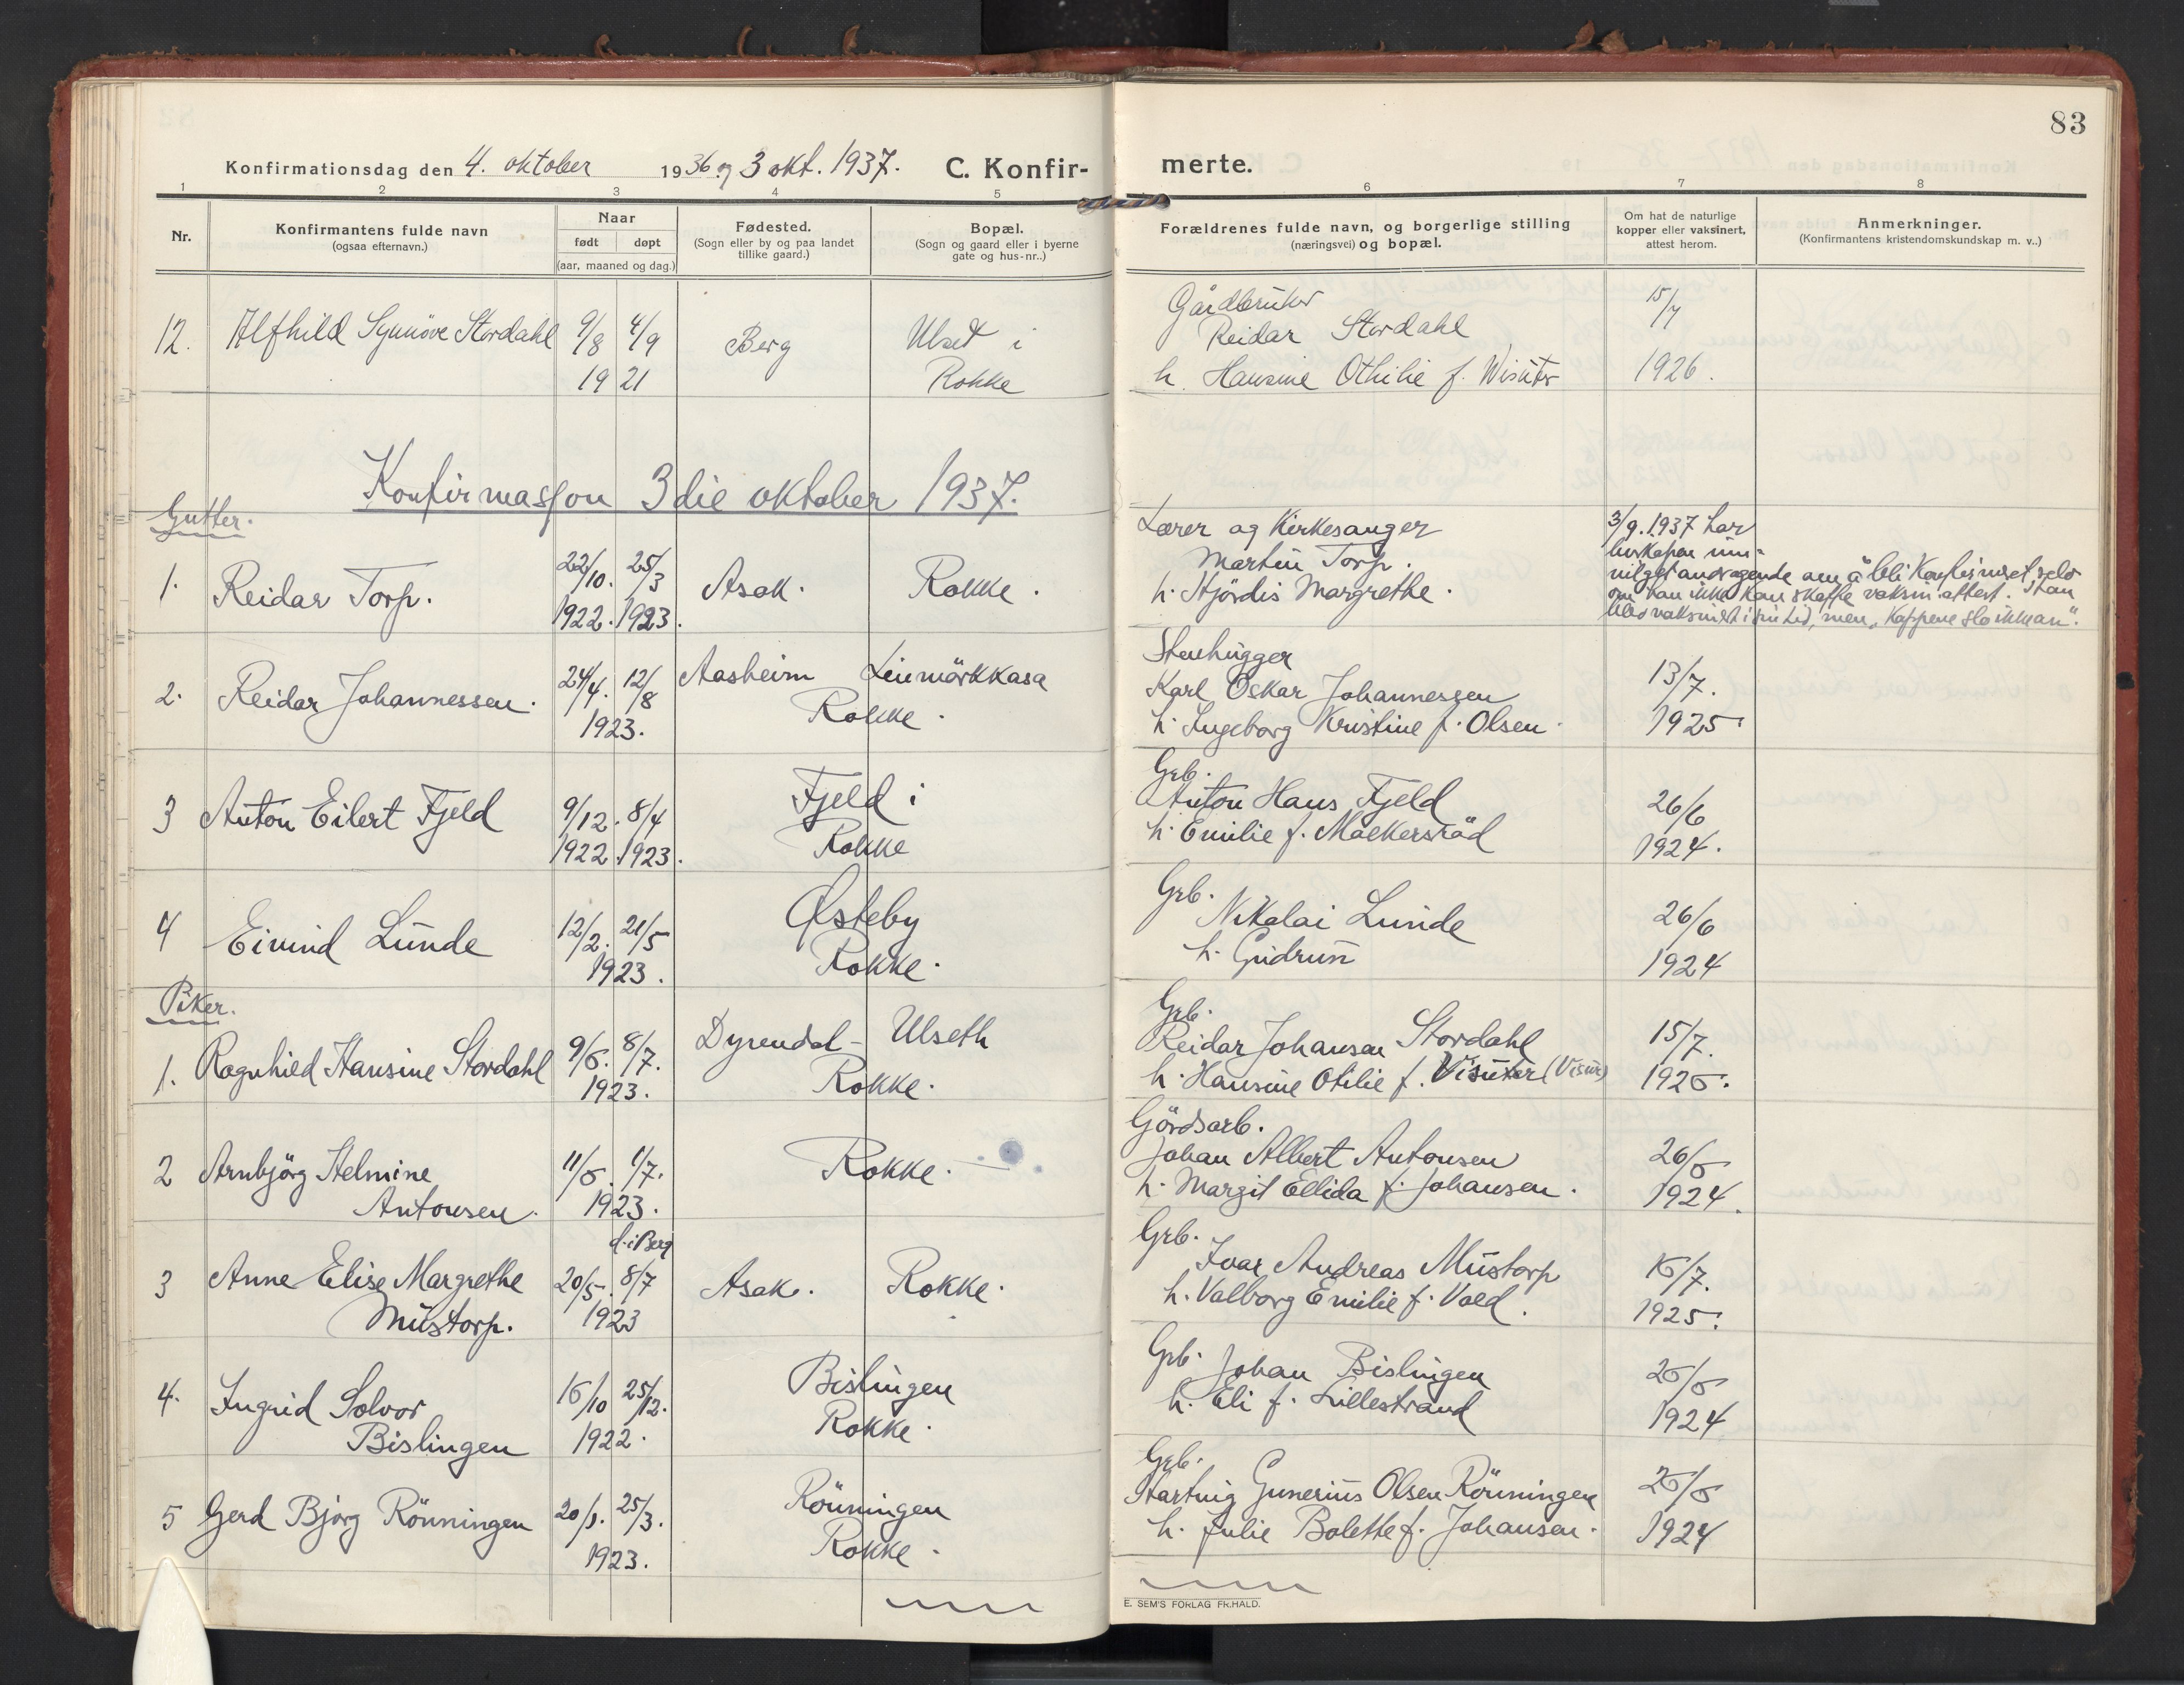 83
Konfirmationsdag den 4. oktober 1936 og 3 okt. 1937. C. Konfir-
merte.
1 2 3 4 5 6 7 8
Nr.
Konfirmantens fulde navn
(ogsaa efternavn.)
Naar
født døpt
(aar, maaned og dag.)
Fødested.
(Sogn eller by og paa landet
tillike gaard.)
Bopæl.
(Sogn og gaard eller i byerne
gate og hus-nr..)
Forældrenes fulde navn, og borgerlige stilling
(næringsvei) og bopæl.
Om hat de naturlige
kopper eller vaksinert,
attest herom.
Anmerkninger.
(Konfirmantens kristendomskundskap m. v..)
12. Alfhild Synnöve Stordahl 9/8 4/9 Berg Ulset i
19 21 Rokke
Gårdbruker
Reidar Stordahl
h. Hansine Othilie f. Wisuter
15/7
1926.
Konfirmasjon 3die oktober 1937.
Gutter.
1. Reidar Torp. 22/10. 25/3 Asak. Rokke.
1922. 1923.
Lærer og Kirkesanger
Martin Torp.
h. Hjördis Margrethe.
3/9. 1937 har
biskopen inn-
vilget andragende om å bli konfirmert selv
om han ikke kan skaffe vaksin.attest. Han
blev vaksinert i sin tid, men "koppene slo ikke an".
2. Reidar Johannessen. 24/4. 12/8 Aasheim Linmörkkasa
1923. Rokke.
Stenhugger
Karl Oskar Johannessen
h. Ingeborg Kristine f. Olsen.
13/7.
1925.
3 Anton Eilert Fjeld 9/12. 8/4 Fjeld i
1922. 1923. Rokke
Grb.
Anton Hans Fjeld
h. Emilie f. Mackersröd
26/6
1924.
4 Eivind Lunde 12/2. 21/5 Østeby
1923. Rokke.
Grb.
Nikolai Lunde
h. Gudrun
26/6
1924
Piker.
1. Ragnhild Hansine Stordahl 9/6. 8/7. Dyrendal - Ulseth
1923. Rokke.
Grb.
Reidar Johansen Stordahl
h. Hansine Otilie f. Visuter (Visur)
15/7.
1926.
2 Arnbjörg Helmine 11/6. 1/7. Rokke.
Antonsen. 1923.
Gördsarb.
Johan Albert Antonsen
h. Margit Ellida f. Johansen.
26/6
1924.
d. i Berg
3 Anne Elise Margrethe 20/5. 8/7 Asak. Rokke.
Mustorp. 1923
Grb.
Ivar Andreas Mustorp
h. Valborg Emilie f. Vold.
16/7.
1925.
4. Ingrid Solvor 16/10 25/12. Bislingen
Bislingen 1922. Rokke.
Grb. Johan Bislingen
h. Eli f. Lillestrand
26/6
1924
5 Gerd Bjørg Rönningen 20/1. 25/3. Rönningen
1923. Rokke.
Grb.
Hartvig Gunerius Olsen Rönningen
h. Julie Bolette f. Johansen.
26/6
1924
E. SEM'S FORLAG FR.HALD.